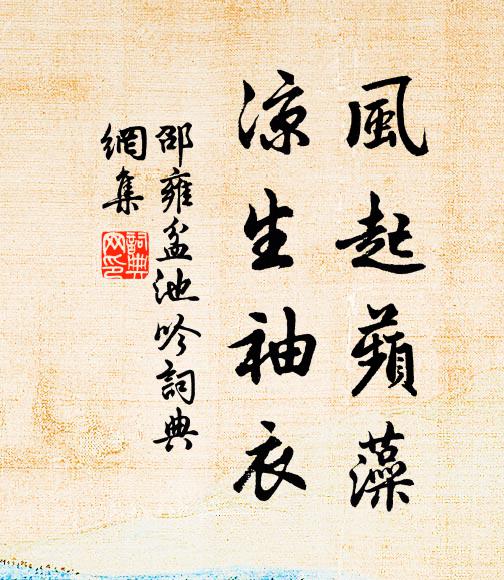 風起蘋藻
涼生袖衣
邵雍盆池吟詞典
網集
詞典
网印